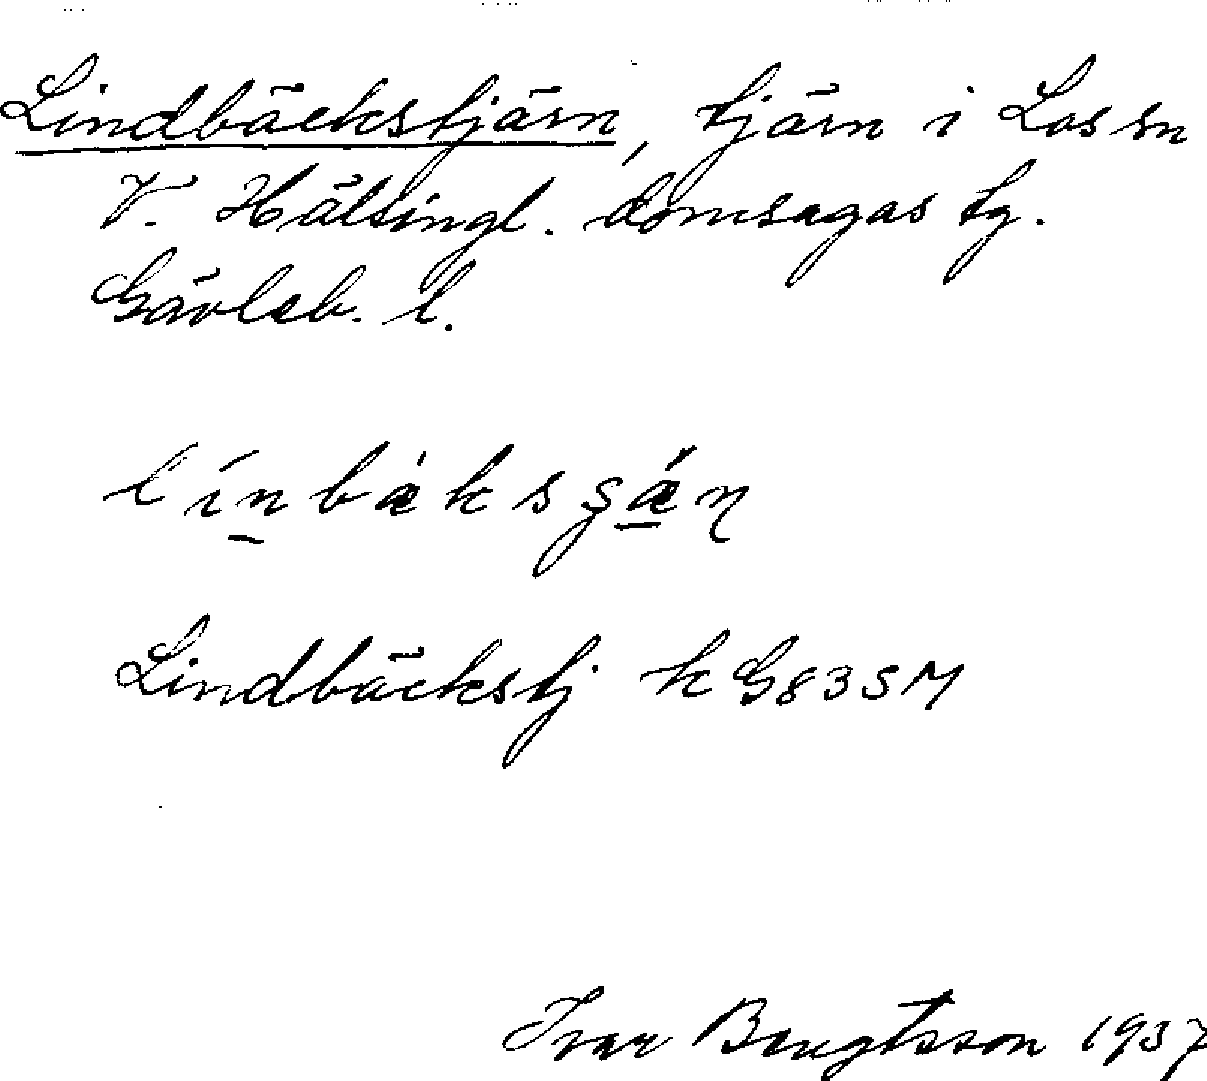 Lindbäckstjärn, tjärn i Los sn
V. Hälsingl. domsagas tg.
Gävleb. l.
Lindbäckstj k G83SM
Ivar Bengtsson 1937